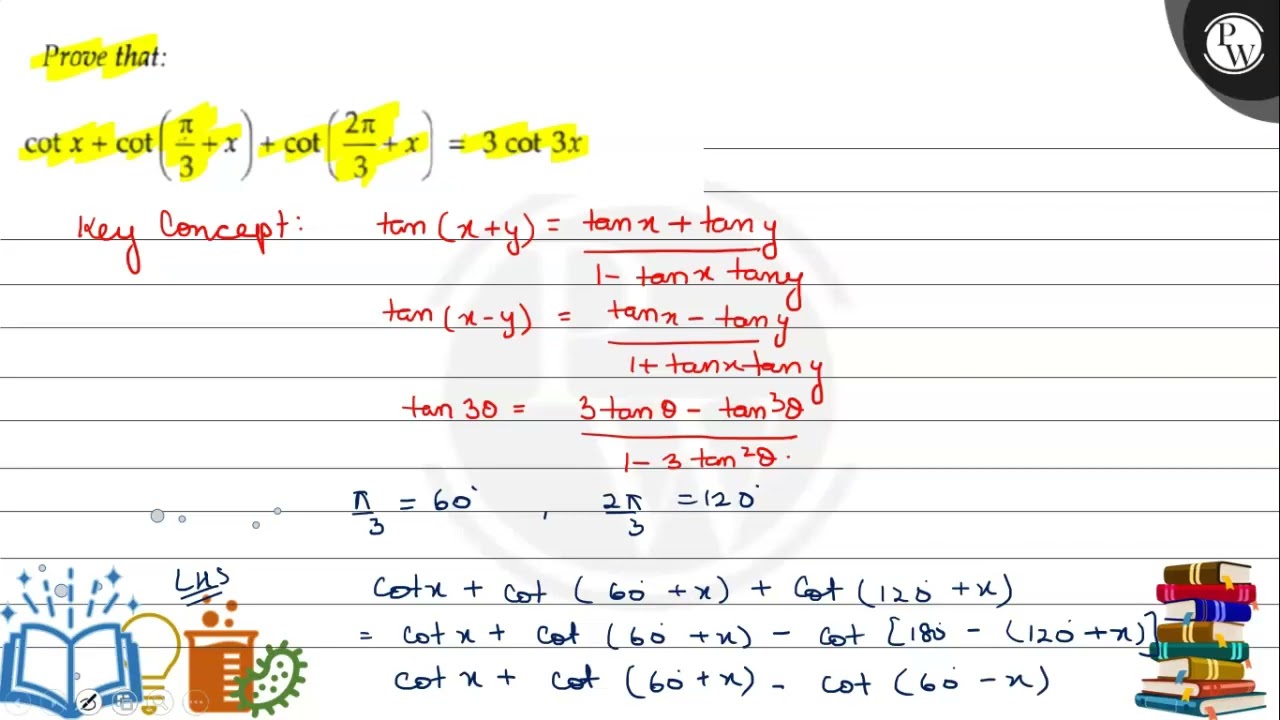 PW
Prove that:
cot x + cot(π/3 + x) + cot(2π/3 + x) = 3 cot 3x
Key Concept: tan (x+y) = tan x + tan y / 1 - tan x tan y
tan (x-y) = tan x - tan y / 1 + tan x tan y
tan 3θ = 3 tan θ - tan³θ / 1 - 3 tan²θ.
π/3 = 60° , 2π/3 = 120°
LHS cot x + cot (60° + x) + cot (120° + x)
= cot x + cot (60° + x) - cot [180° - (120° + x)]
cot x + cot (60° + x) - cot (60° - x)